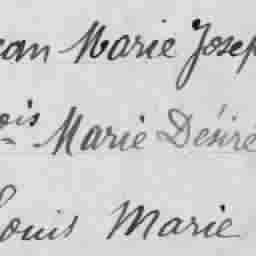 ean Marie Josep
ois Marie Désiré
Louis Marie